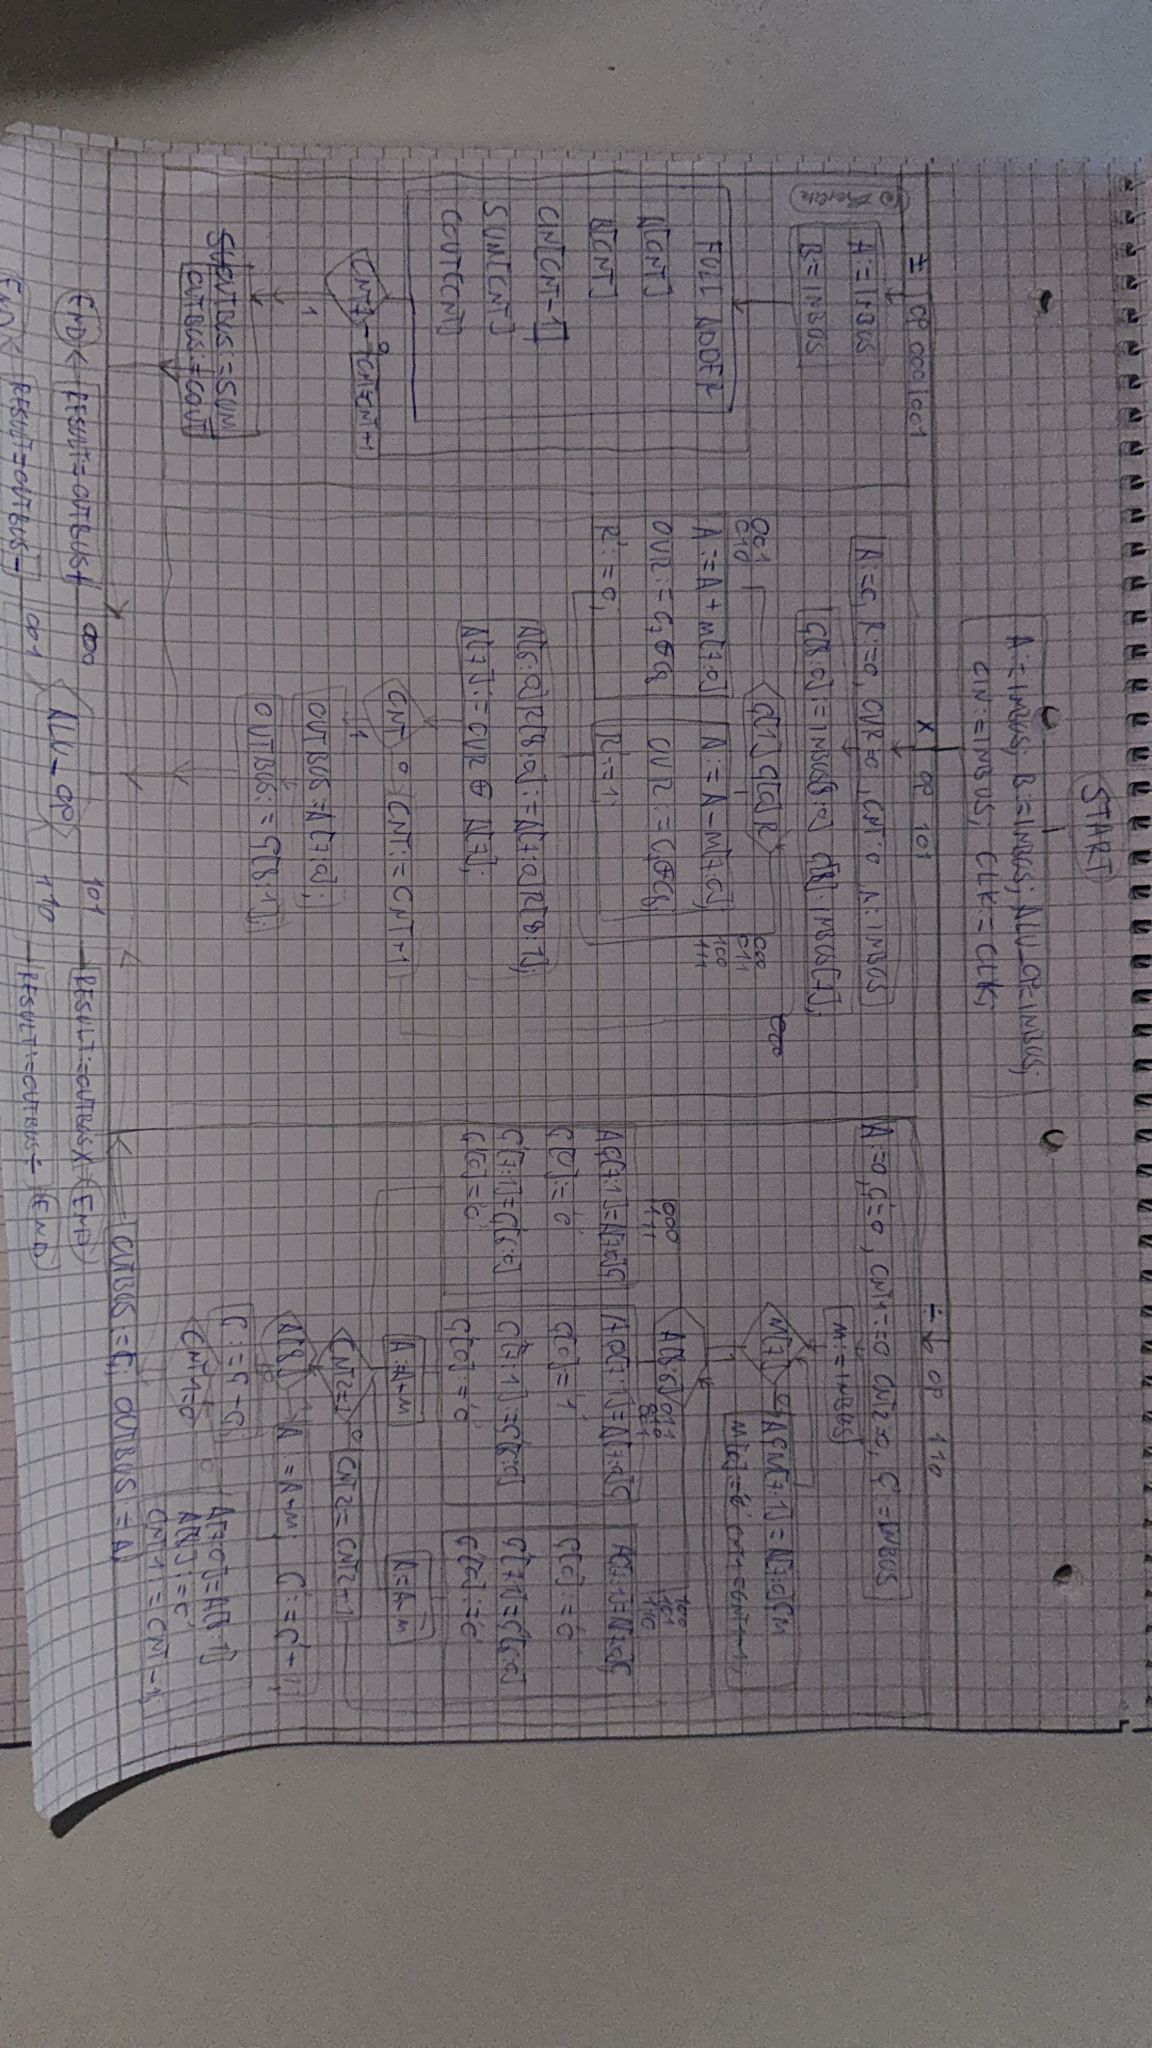 START
A:=INBUS; B:=INBUS; ALU_OP=INBUS;
CIN:=INBUS; CLK:=CLK;
± OP 000/001
A:=INBUS
B:=INBUS
FULL ADDER
A[CNT]
B[CNT]
CIN[CNT-1]
SUM[CNT]
COUT[CNT]
CNT7 0 CNT=CNT+1
1
OUTBUS:=SUM
OUTBUS:=COUT
X OP 101
A:=0, R:=0, OVR=0, CNT:0
Q[8:0]:=INBUS[8:0] Q[8]:INBUS[7];
Q[1]Q[0]R
001
010
000
011
100
111
000
A:=A+M[7:0]
OVR:=C7⊕C8
R:=0;
A:=A-M[7:0];
R:=1;
A[6:0]R[8:0]:=A[7:0]R[8:1];
A[7]:=OVR ⊕ A[7];
CNT 0 CNT:=CNT+1
1
OUTBUS:=A[7:0];
OUTBUS:=Q[8:1];
÷ OP 110
A:=0, Q'=0, CNT1:=0 CNT2=0, Q:=INBUS
M:=INBUS
M[7] 0 AQM[7:1]=A[7:0]QM
1
A[8:6]
000
111
100
101
110
AQ[7:1]=A[7:0]Q
Q[0]:=0
Q'[7:1]=Q'[6:0]
Q'[0]=0
AQ[7:1]=A[7:0]Q
Q[0]:=1
Q'[7:1]:=Q'[6:0]
Q'[0]:=0
AQ[7:1]=A[7:0]Q
Q[0]:=0
Q'[7:1]=Q'[6:0]
Q'[0]:=0
CNT2=7 0 CNT2=CNT2+1
A[8]
Q:=Q-Q'
CNT1=0
A[7:0]=A[8:1]
A[8]:=0
OUTBUS=Q; OUTBUS:=A
ALU_OP
000 RESULT=OUTBUS+ END
001 RESULT=OUTBUS- END
101 RESULT:=OUTBUSX END
110 RESULT:=OUTBUS÷ END